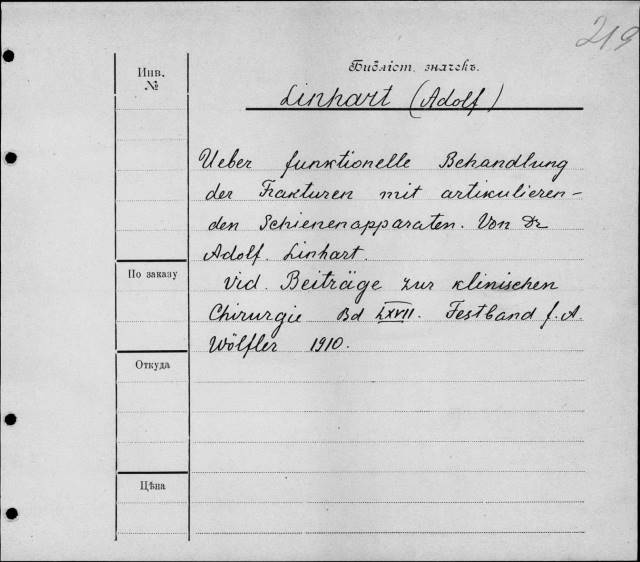 219
Инв.
№
Библіот. значекъ.
Linhart (Adolf)
Ueber funktionelle Behandlung
der Frakturen mit artikulieren-
den Schienenapparaten. Von Dr
Adolf. Linhart.
По заказу
vid. Beiträge zur klinischen
Chirurgie Bd LXVII. Festband f. A.
Wölfler 1910.
Откуда
Цѣна